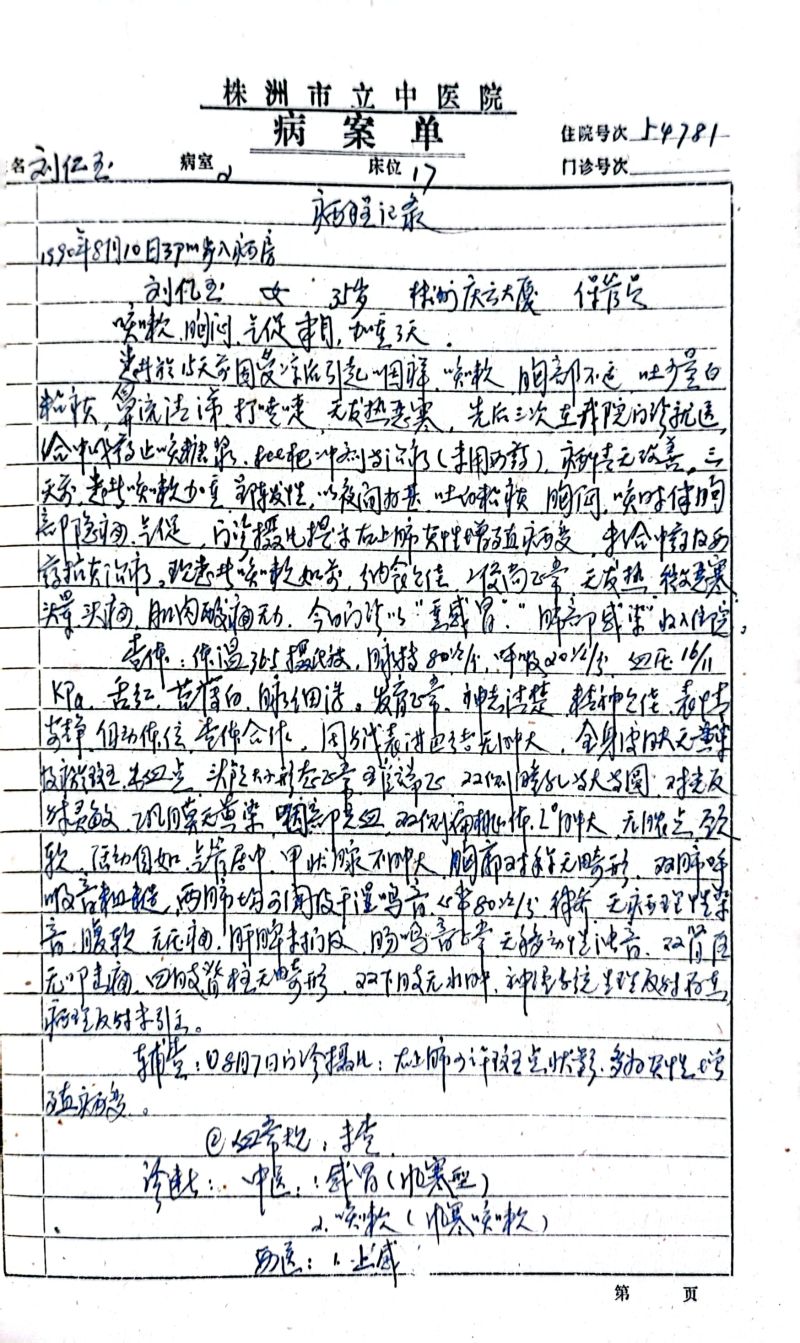 株洲市立中医院
病案单
住院号次 54781
名 刘亿玉 病室 2 床位 17 门诊号次
病程记录
1990年8月10日3pm步入病房
刘亿玉 女 35岁 株州庆云大厦 保管员
咳嗽、胸闷、气促半月,加重3天。
患者於15天前因受凉后引起咽痒、咳嗽、胸部不适、吐少量白
粘痰,鼻流清涕,打喷嚏,无发热恶寒,先后三次在我院门诊就医,
给中成药止咳糖浆、冲剂等治疗(未用西药),病情无改善。三
天前,患者咳嗽加重,呈阵发性,以夜间为甚,吐白粘痰,胸闷,咳时伴胸
部隐痛,气促,门诊摄片提示右上肺灶性增殖病变,未给中药及西
药抗炎治疗。现患者咳嗽如前,纳食欠佳,二便尚正常,无发热,微恶寒,
头晕头痛,肌肉酸痛无力。今日门诊以“重感冒”“肺部感染”收入住院。
查体:体温36.5摄氏度,脉搏80次/分,呼吸20次/分,血压16/11
KPa,舌红,苔薄白,脉细滑。发育正常,神志清楚,精神欠佳,表情
安静,自动体位,查体合作。周身浅表淋巴结无肿大,全身皮肤无黄染
及瘀斑、出血点,头颅大小形态正常,五官端正,双侧瞳孔等大等圆,对光反
射灵敏,巩膜无黄染,咽部充血,双侧扁桃体2°肿大,无脓点,颈
软,活动自如,气管居中,甲状腺不肿大,胸廓对称无畸形,双肺呼
吸音粗糙,两肺均可闻及干湿鸣音,心率80次/分,律齐,无病理性杂
音,腹软,无压痛,肝脾未扪及,肠鸣音正常,无移动性浊音,双肾区
无叩击痛,四肢脊柱无畸形,双下肢无水肿,神经系统生理反射存在,
病理反射未引出。
辅查:①8月7日门诊摄片:右上肺可许斑点状影,多为灶性增
殖病变。
②血常规:未查
诊断:中医:1.感冒(风寒型)
2.咳嗽(风寒咳嗽)
西医:1.上感
第 页